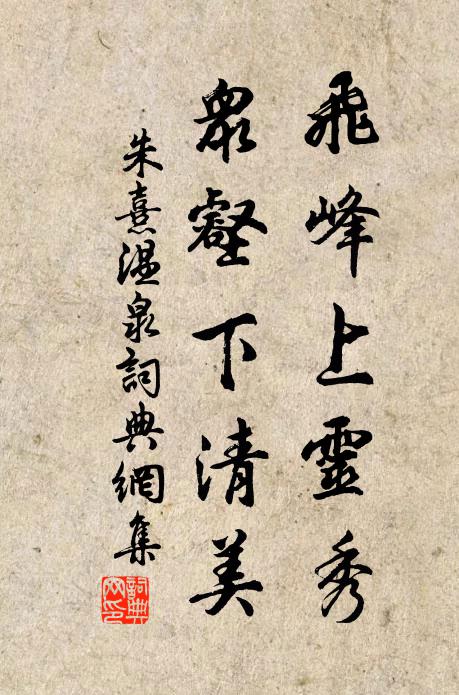 飛峰上靈秀
衆壑下清美
朱熹溫泉詞典網集
詞典網印